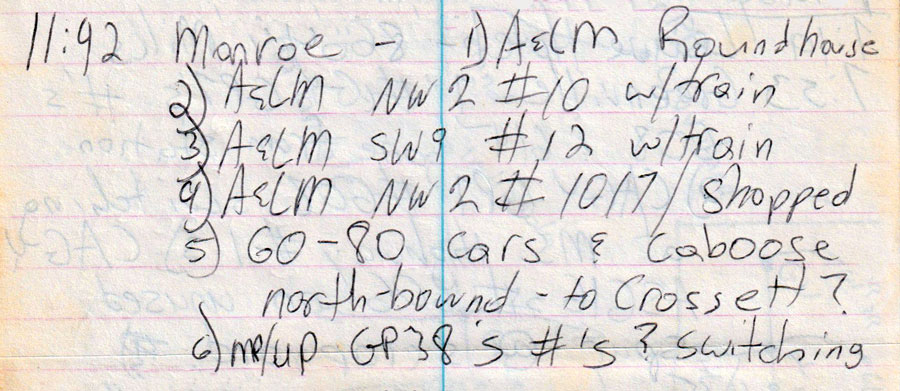 11:42 Monroe - 1) A&LM Roundhouse
2) A&LM NW2 #10 w/train
3) A&LM SW9 #12 w/train
4) A&LM NW2 #1017/shopped
5) 60-80 cars & caboose
north-bound - to Crossett?
6) MP/UP GP38's #'s? switching